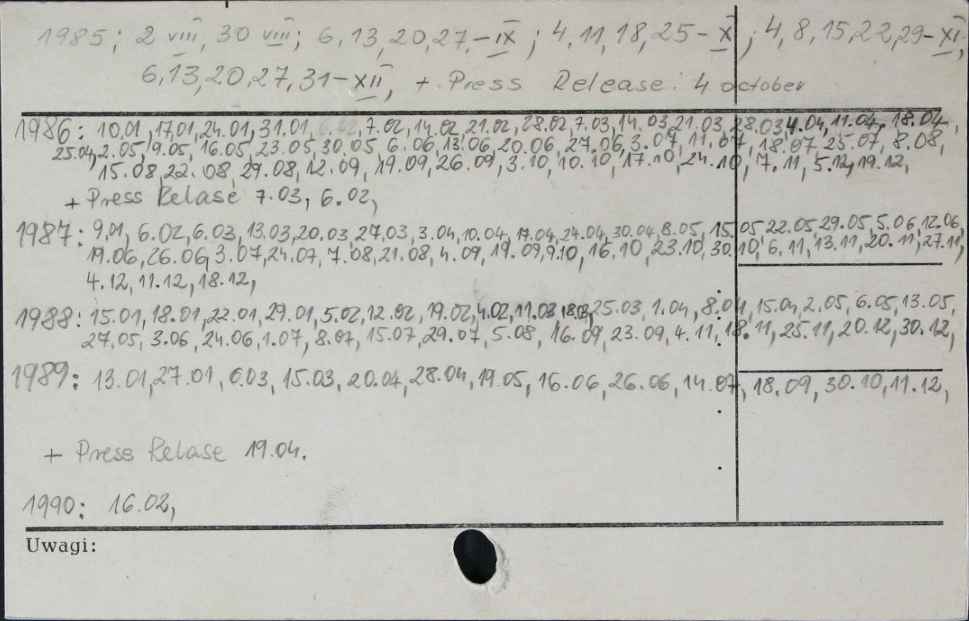 1985; 2 VIII, 30 VIII; 6,13,20,27-IX; 4,11,18,25-X; 4,8,15,22,29-XI
6,13,20,27,31-XII, + Press Release: 4 october
1986: 10.01, 17.01, 24.01, 31.01, 7.02, 14.02, 21.02, 28.02, 7.03, 14.03, 21.03, 28.03, 4.04, 11.04, 18.04,
25.04, 2.05, 9.05, 16.05, 23.05, 30.05, 6.06, 13.06, 20.06, 27.06, 3.07, 11.07, 18.07, 25.07, 8.08,
15.08, 22.08, 29.08, 12.09, 19.09, 26.09, 3.10, 10.10, 17.10, 24.10, 7.11, 5.12, 19.12,
+ Press Relase 7.03, 6.02,
1987: 9.01, 6.02, 6.03, 13.03, 20.03, 27.03, 3.04, 10.04, 17.04, 24.04, 30.04, 8.05, 15.05 22.05 29.05, 5.06, 12.06,
19.06, 26.06, 3.07, 24.07, 7.08, 21.08, 4.09, 19.09, 9.10, 16.10, 23.10, 30.10, 6.11, 13.11, 20.11, 27.11,
4.12, 11.12, 18.12,
1988: 15.01, 18.01, 22.01, 29.01, 5.02, 12.02, 19.02, 4.02, 11.03, 18.03, 25.03, 1.04, 8.04, 15.04, 2.05, 6.05, 13.05,
27.05, 3.06, 24.06, 1.07, 8.07, 15.07, 29.07, 5.08, 16.09, 23.09, 4.11, 18.11, 25.11, 20.12, 30.12,
1989: 13.01, 27.01, 6.03, 15.03, 20.04, 28.04, 19.05, 16.06, 26.06, 14.07, 18.09, 30.10, 11.12,
+ Press Relase 19.04.
1990: 16.02,
Uwagi: